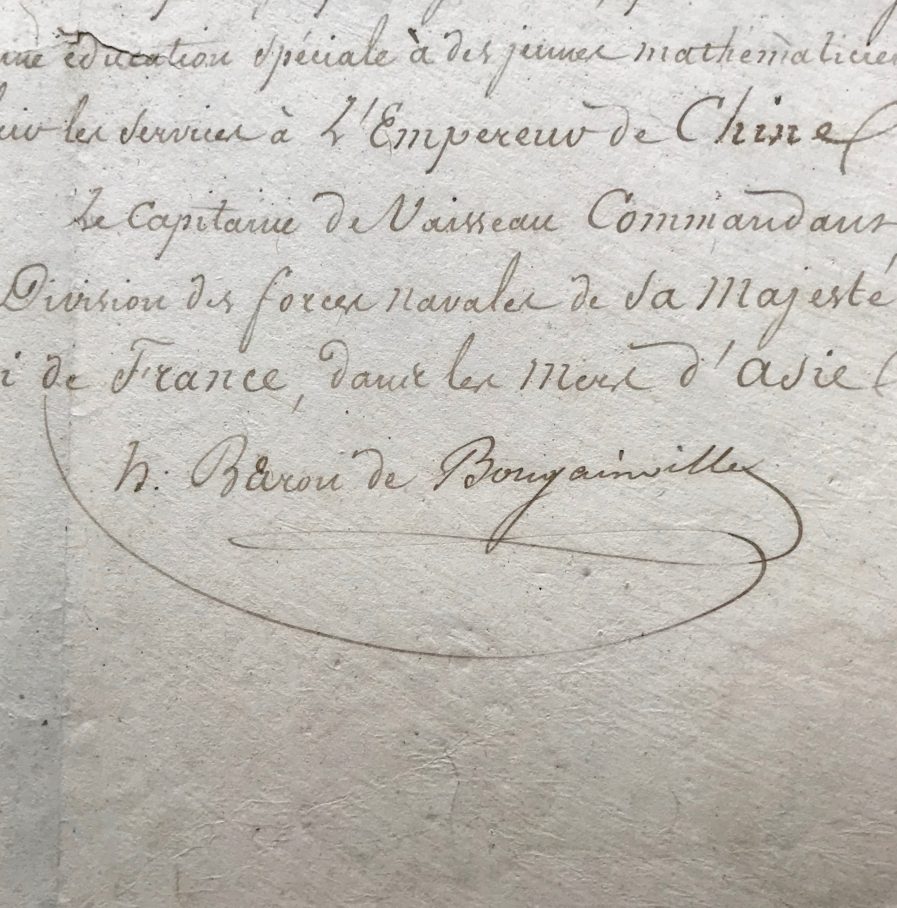 une éducation spéciale à des jeunes mathématicie
les services à L'Empereur de Chine
Le Capitaine de Vaisseau Commandant
Division des forces navales de Sa Majesté
i de France, dans les Mers d'Asie
h. Baron de Bougainville